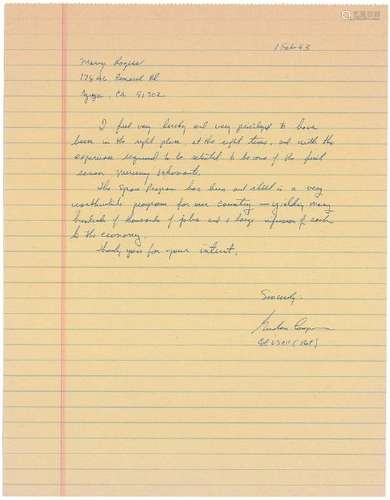 1 Feb 83
Mary Rogers
Encino, CA 91302
I feel very lucky and very privileged to have
been in the right place, at the right time, and with the
experience required to be selected to be one of the first
seven Mercury astronauts.
The Space Program has been and still is a very
worthwhile program for our country — yielding many
hundreds of thousands of jobs and a large infusion of cash
to the economy.
Thank you for your interest.
Sincerely,
Gordon Cooper
Col USAF (Ret)